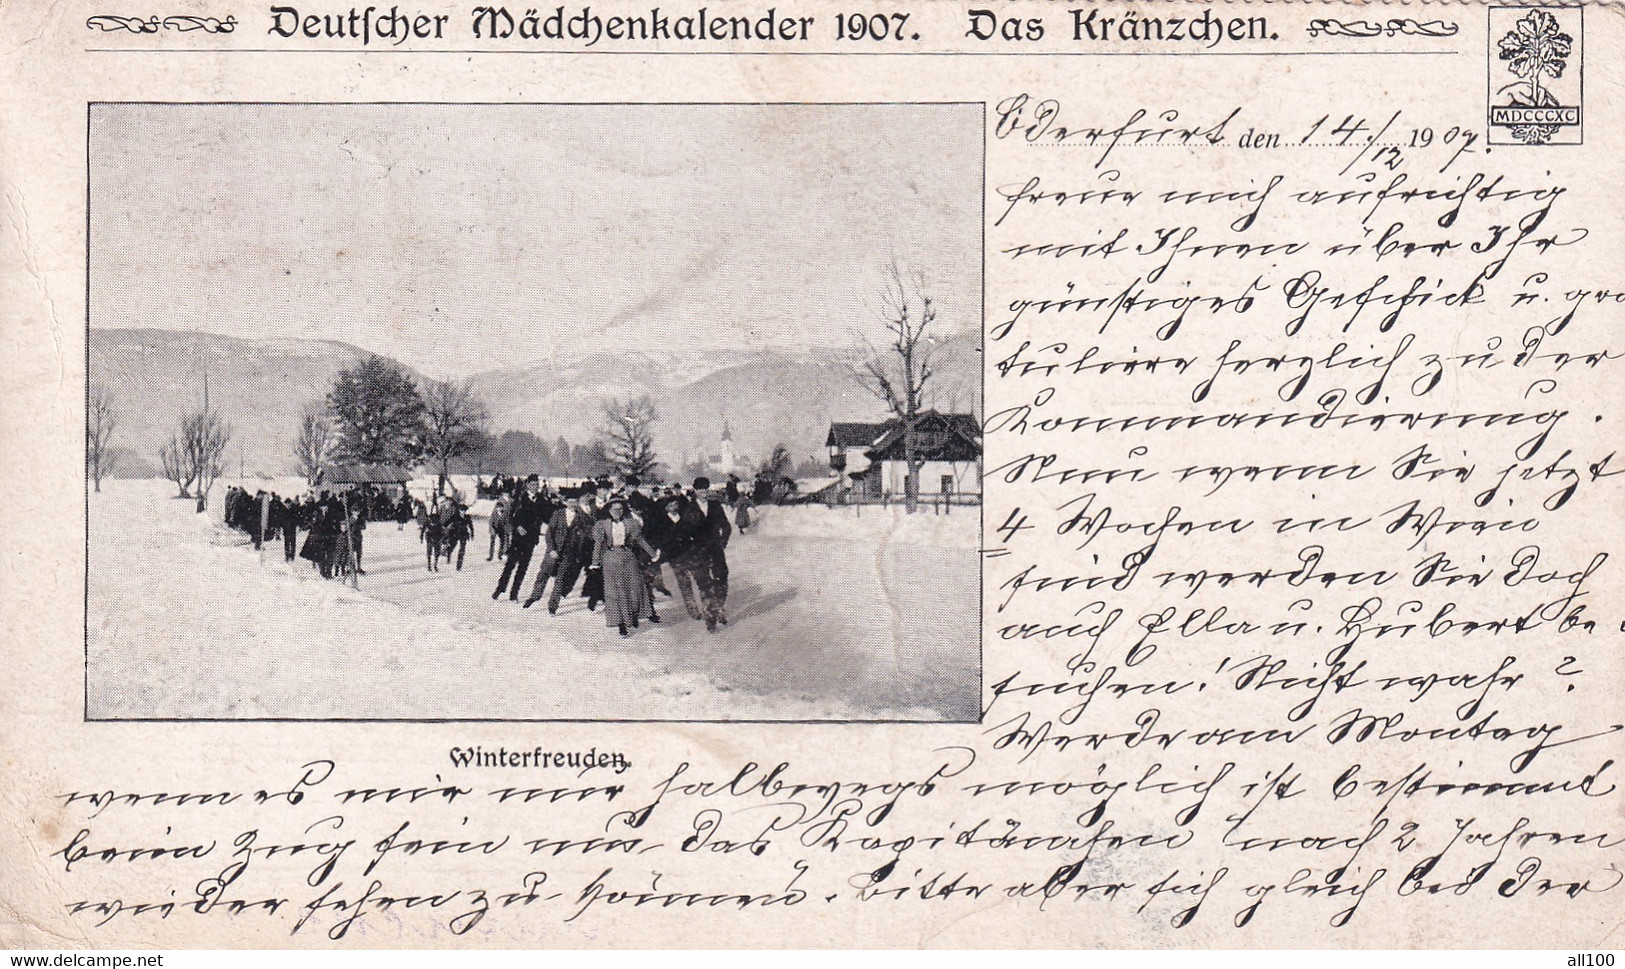 Deutscher Mädchenkalender 1907. Das Kränzchen.
MDCCCXC
Oderfurt den 14./12 1907.
freue mich aufrichtig
mit Ihnen über Ihr
günstiges Geschick u. gra
tuliere herzlich zu der
Kommandierung.
Nun wenn Sie jetzt
4 Wochen in Wien
sind werden Sie doch
auch Ella u. Hubert be
suchen! Nicht wahr?
Werde am Montag
Winterfreuden.
wenn es mir nur halbwegs möglich ist bestimmt
beim Zug sein um das Kapitänchen nach 2 Jahren
wieder sehen zu können. Bitte aber sich gleich bei der
delcampe.net
all100